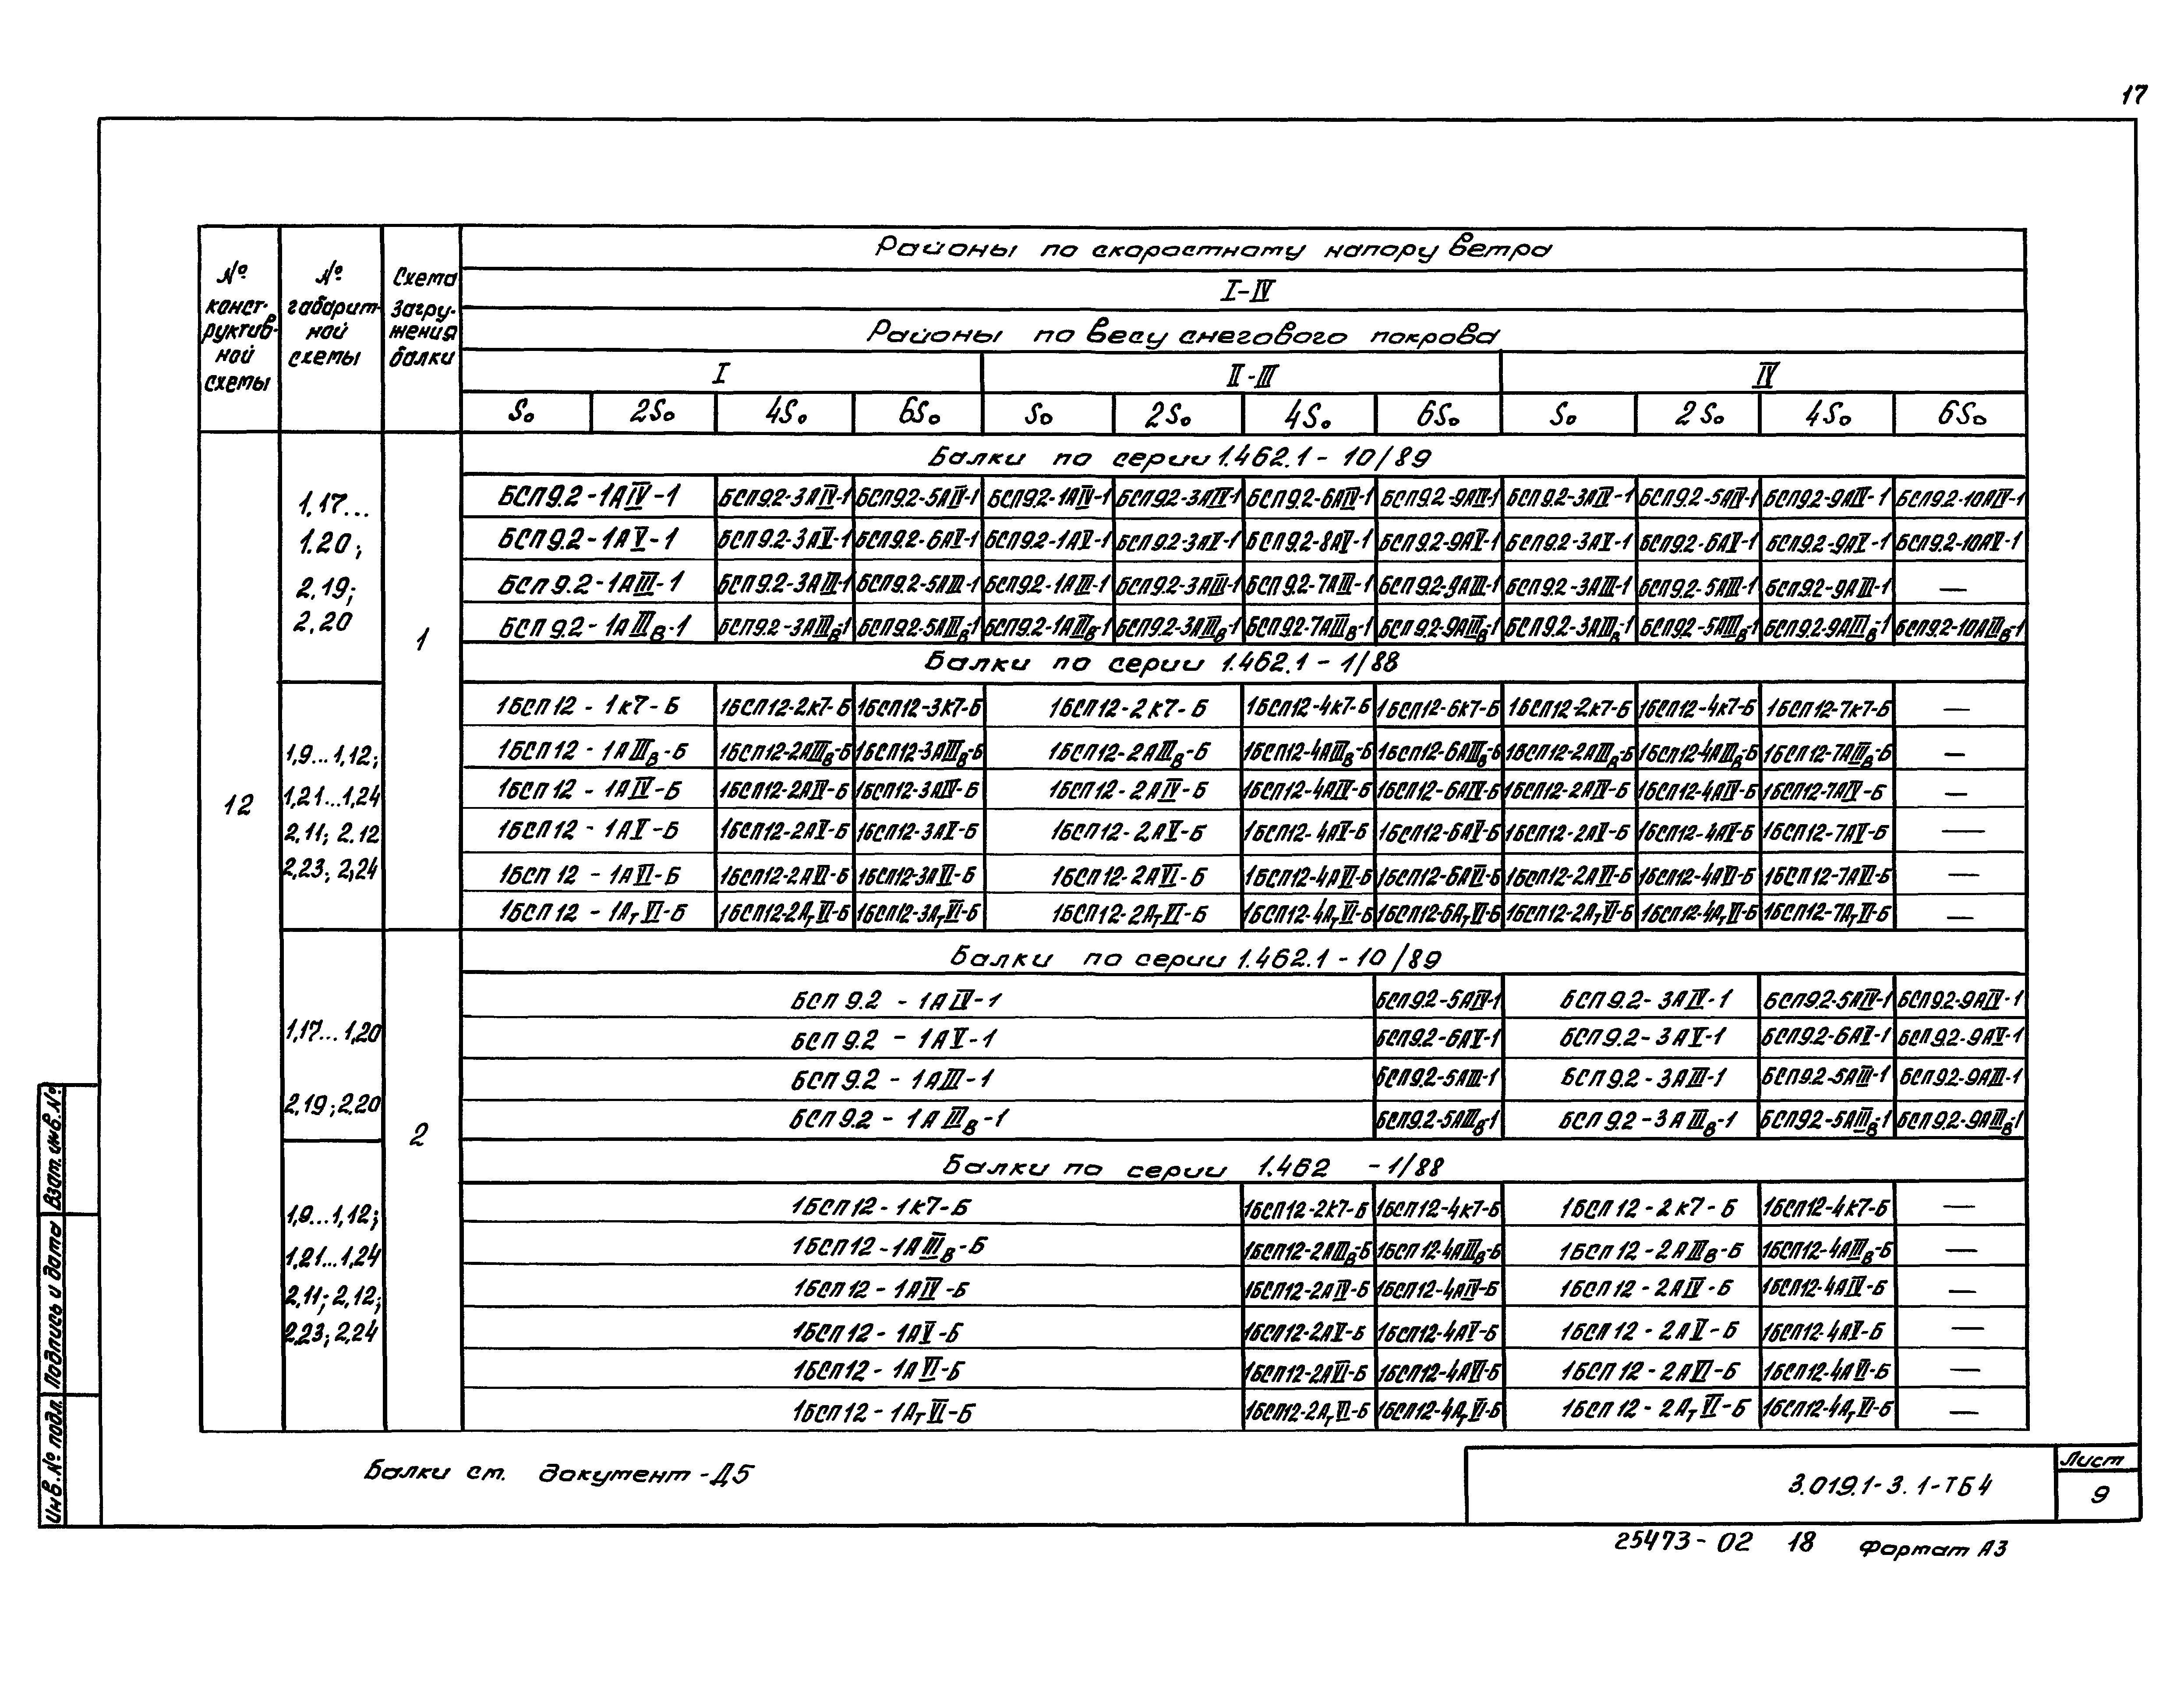 17
№ конструктивной схемы
№ габаритной схемы
Схема загружения балки
Районы по скоростному напору ветра
I-IV
Районы по весу снегового покрова
I II-III IV
S₀ 2S₀ 4S₀ 6S₀ S₀ 2S₀ 4S₀ 6S₀ S₀ 2S₀ 4S₀ 6S₀
12
1.17...
1.20;
2.19;
2.20
1
Балки по серии 1.462.1-10/89
БСП9.2-1АIV-1 БСП9.2-3АIV-1 БСП9.2-5АIV-1 БСП9.2-1АIV-1 БСП9.2-3АIV-1 БСП9.2-6АIV-1 БСП9.2-9АIV-1 БСП9.2-3АIV-1 БСП9.2-5АIV-1 БСП9.2-9АIV-1 БСП9.2-10АIV-1
БСП9.2-1АV-1 БСП9.2-3АV-1 БСП9.2-6АV-1 БСП9.2-1АV-1 БСП9.2-3АV-1 БСП9.2-8АV-1 БСП9.2-9АV-1 БСП9.2-3АV-1 БСП9.2-6АV-1 БСП9.2-9АV-1 БСП9.2-10АV-1
БСП9.2-1АIII-1 БСП9.2-3АIII-1 БСП9.2-5АIII-1 БСП9.2-1АIII-1 БСП9.2-3АIII-1 БСП9.2-7АIII-1 БСП9.2-9АIII-1 БСП9.2-3АIII-1 БСП9.2-5АIII-1 БСП9.2-9АIII-1 —
БСП9.2-1АIIIв-1 БСП9.2-3АIIIв-1 БСП9.2-5АIIIв-1 БСП9.2-1АIIIв-1 БСП9.2-3АIIIв-1 БСП9.2-7АIIIв-1 БСП9.2-9АIIIв-1 БСП9.2-3АIIIв-1 БСП9.2-5АIIIв-1 БСП9.2-9АIIIв-1 БСП9.2-10АIIIв-1
Балки по серии 1.462.1-1/88
1,9...1,12;
1,21...1,24
2,11; 2.12
2,23; 2,24
1БСП12-1К7-Б 1БСП12-2К7-Б 1БСП12-3К7-Б 1БСП12-2К7-Б 1БСП12-4К7-Б 1БСП12-6К7-Б 1БСП12-2К7-Б 1БСП12-4К7-Б 1БСП12-7К7-Б —
1БСП12-1АIIIв-Б 1БСП12-2АIIIв-Б 1БСП12-3АIIIв-Б 1БСП12-2АIIIв-Б 1БСП12-4АIIIв-Б 1БСП12-6АIIIв-Б 1БСП12-2АIIIв-Б 1БСП12-4АIIIв-Б 1БСП12-7АIIIв-Б —
1БСП12-1АIV-Б 1БСП12-2АIV-Б 1БСП12-3АIV-Б 1БСП12-2АIV-Б 1БСП12-4АIV-Б 1БСП12-6АIV-Б 1БСП12-2АIV-Б 1БСП12-4АIV-Б 1БСП12-7АIV-Б —
1БСП12-1АV-Б 1БСП12-2АV-Б 1БСП12-3АV-Б 1БСП12-2АV-Б 1БСП12-4АV-Б 1БСП12-6АV-Б 1БСП12-2АV-Б 1БСП12-4АV-Б 1БСП12-7АV-Б —
1БСП12-1АVI-Б 1БСП12-2АVI-Б 1БСП12-3АVI-Б 1БСП12-2АVI-Б 1БСП12-4АVI-Б 1БСП12-6АVI-Б 1БСП12-2АVI-Б 1БСП12-4АVI-Б 1БСП12-7АVI-Б —
1БСП12-1АтVI-Б 1БСП12-2АтVI-Б 1БСП12-3АтVI-Б 1БСП12-2АтVI-Б 1БСП12-4АтVI-Б 1БСП12-6АтVI-Б 1БСП12-2АтVI-Б 1БСП12-4АтVI-Б 1БСП12-7АтVI-Б —
1,17...1,20
2,19; 2,20
2
Балки по серии 1.462.1-10/89
БСП9.2-1АIV-1 БСП9.2-5АIV-1 БСП9.2-3АIV-1 БСП9.2-5АIV-1 БСП9.2-9АIV-1
БСП9.2-1АV-1 БСП9.2-6АV-1 БСП9.2-3АV-1 БСП9.2-6АV-1 БСП9.2-9АV-1
БСП9.2-1АIII-1 БСП9.2-5АIII-1 БСП9.2-3АIII-1 БСП9.2-5АIII-1 БСП9.2-9АIII-1
БСП9.2-1АIIIв-1 БСП9.2-5АIIIв-1 БСП9.2-3АIIIв-1 БСП9.2-5АIIIв-1 БСП9.2-9АIIIв-1
Балки по серии 1.462 -1/88
1,9...1,12;
1,21...1,24
2,11; 2,12;
2,23; 2,24
1БСП12-1К7-Б 1БСП12-2К7-Б 1БСП12-4К7-Б 1БСП12-2К7-Б 1БСП12-4К7-Б —
1БСП12-1АIIIв-Б 1БСП12-2АIIIв-Б 1БСП12-4АIIIв-Б 1БСП12-2АIIIв-Б 1БСП12-4АIIIв-Б —
1БСП12-1АIV-Б 1БСП12-2АIV-Б 1БСП12-4АIV-Б 1БСП12-2АIV-Б 1БСП12-4АIV-Б —
1БСП12-1АV-Б 1БСП12-2АV-Б 1БСП12-4АV-Б 1БСП12-2АV-Б 1БСП12-4АV-Б —
1БСП12-1АVI-Б 1БСП12-2АVI-Б 1БСП12-4АVI-Б 1БСП12-2АVI-Б 1БСП12-4АVI-Б —
1БСП12-1АтVI-Б 1БСП12-2АтVI-Б 1БСП12-4АтVI-Б 1БСП12-2АтVI-Б 1БСП12-4АтVI-Б —
Балки см. документ -Д5
3.019.1-3.1-ТБ4
Лист
9
25473-02 18 Формат А3
Инв.№ подл. Подпись и дата Взам.инв.№